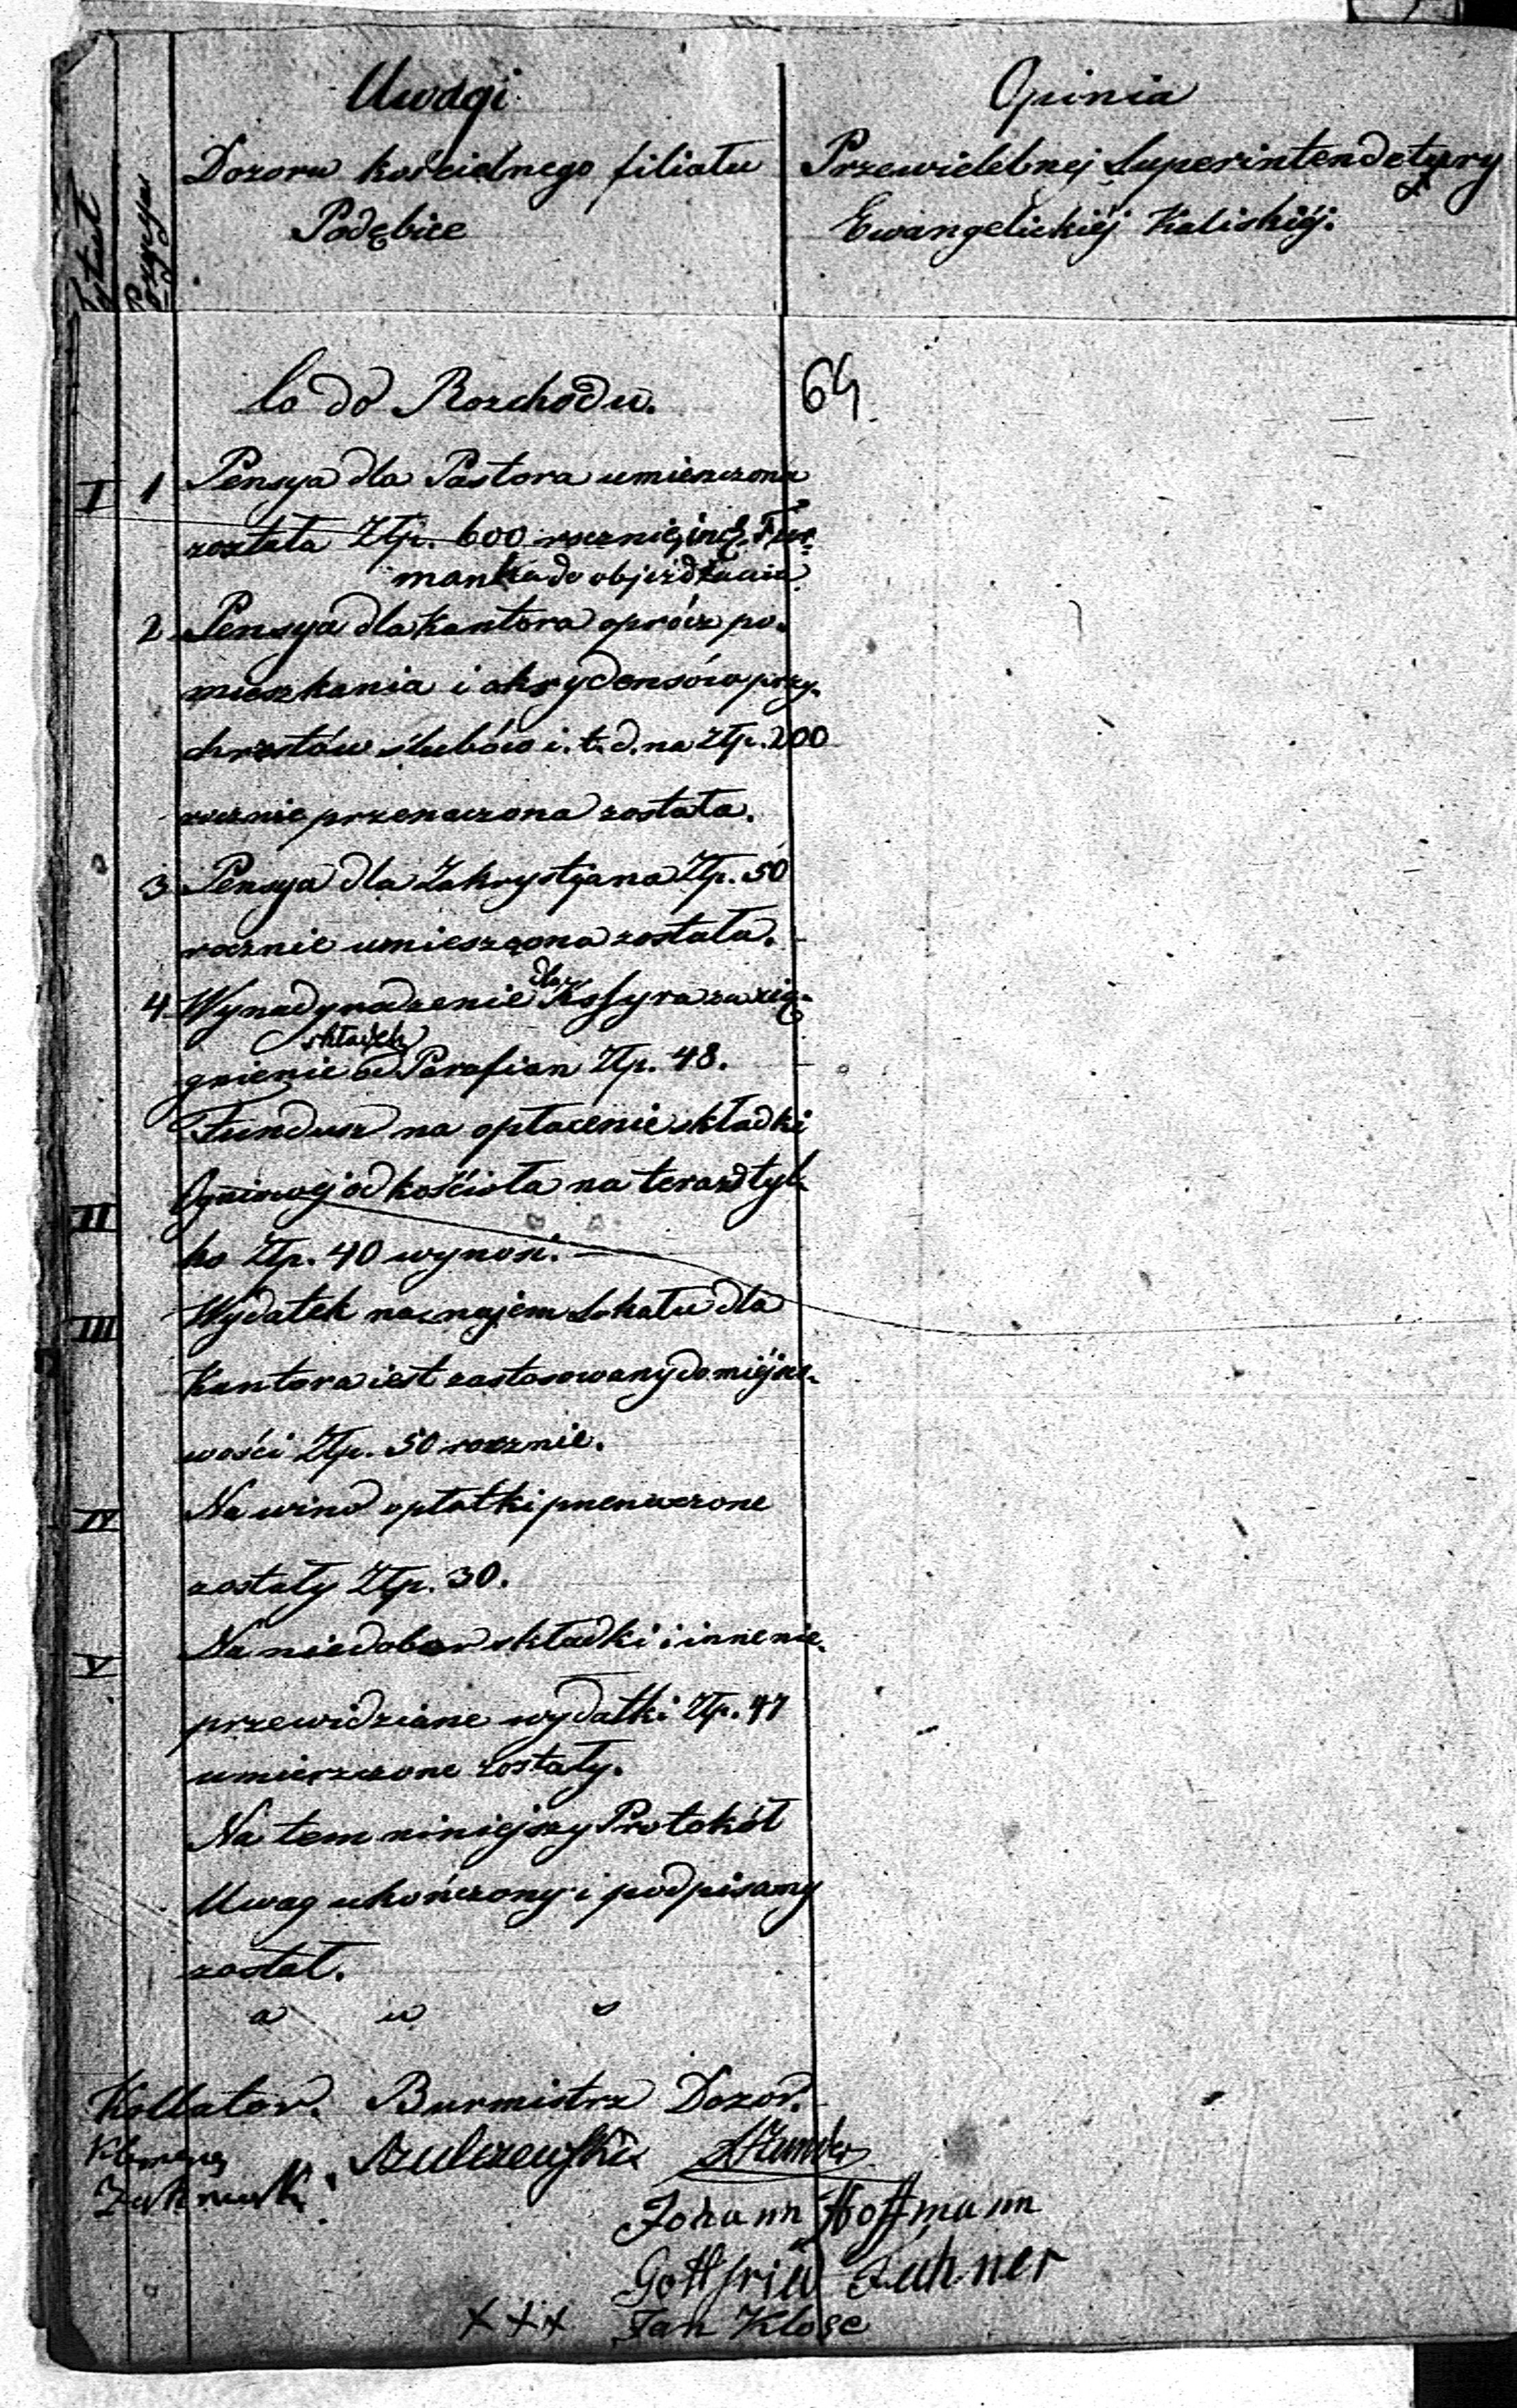 Tytuł
Pozycya
Uwagi
Dozoru kościelnego filiału
Podębice
Opinia
Przewielebnej Superintendetury
Ewangelickiéj Kaliskiéj.
64
Co do Rozchodu.
I 1 Pensya dla Pastora umieszczona
została Złp. 600 rocznie, incl. Fur-
manka do objeżdżania
2 Pensya dla Kantora oprócz po-
mieszkania i akcydensów przy
chrztów ślubów i. t. d. na Złp. 200
rocznie przenaczona została.
3 Pensya dla Zakrystyana Złp. 50
rocznie umieszczona została.
4 Wynadgrodzenie dla Kassyra za ścią-
gnienie składek od Parafian Złp. 48.
II Fundusz na opłacenie składki
Ogniowej od kościoła na teraz tyl-
ko Złp. 40 wynosi. —
III Wydatek na najem Lokalu dla
Kantora iest zastosowany do miéjsco-
wości Złp. 50 rocznie.
IV Na wino opłatki przenaczone
zostały Złp. 30.
V Na niedobor składki i inne nie-
przewidziane wydatki Złp. 47
umieszczone zostały.
Na tem niniejszy Protokół
Uwag ukończony i podpisany
został.
a u s
Kollator. Burmistrz Dozor.
Szulczewski
Johann Hoffmann
Gottfried
XXX Jan Klose